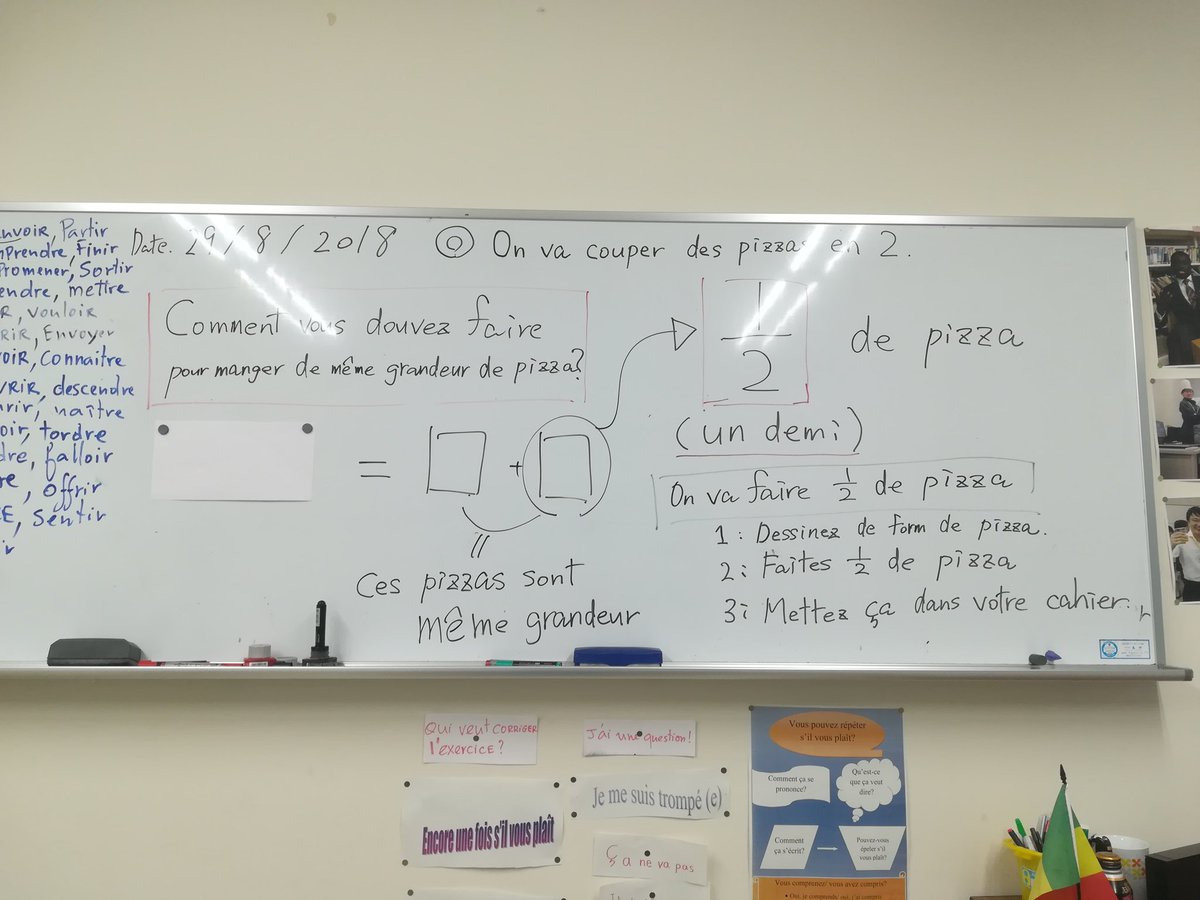 Partir
Finir
Promener, Sortir
endre, mettre
R, vouloir
RIR, Envoyer
VOIR, Connaitre
VRIR, descendre
rir, naître
oir, tordre
dre, falloir
re, offrir
CE, Sentir
ir
Date. 29/8/2018 ◎ On va couper des pizzas en 2.
Comment vous douvez faire
pour manger de même grandeur de pizza?
1/2 de pizza
(un demi)
= □ + □
Ces pizzas sont
même grandeur
On va faire 1/2 de pizza
1: Dessinez de form de pizza.
2: Faites 1/2 de pizza
3: Mettez ça dans votre cahier.
Qui veut CORRIGER
l'exercice?
J'ai une question!
Encore une fois s'il vous plaît
Je me suis trompé (e)
Ça ne va pas
Vous pouvez répéter
s'il vous plaît?
Comment ça se
prononce?
Qu'est-ce
que ça veut
dire?
Comment
ça s'écrit?
Pouvez-vous
épeler s'il
vous plaît?
Vous comprenez/ vous avez compris?